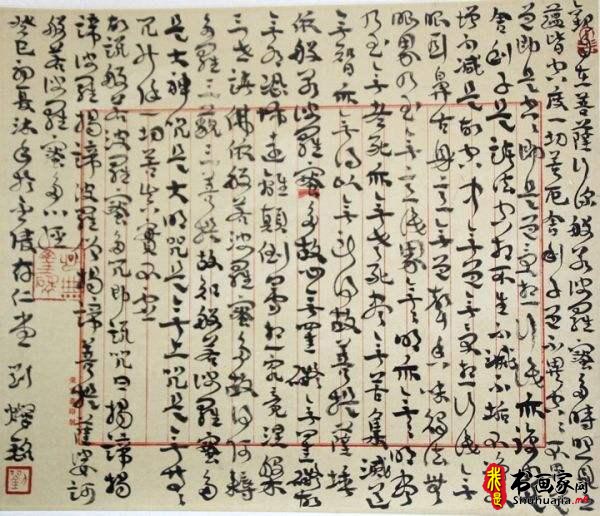 觀自在菩薩行深般若波羅蜜多時照見五
蘊皆空度一切苦厄舍利子色不異空空不異色
色即是空空即是色受想行識亦復如是
舍利子是諸法空相不生不滅不垢不淨不
增不減是故空中無色無受想行識無
眼耳鼻舌身意無色聲香味觸法無
眼界乃至無意識界無無明亦無無明盡
乃至無老死亦無老死盡無苦集滅道
無智亦無得以無所得故菩提薩埵
依般若波羅蜜多故心無罣礙無罣礙故
無有恐怖遠離顛倒夢想究竟涅槃
三世諸佛依般若波羅蜜多故得阿耨
多羅三藐三菩提故知般若波羅蜜多
是大神咒是大明咒是無上咒是無等等
咒能除一切苦真實不虛
故說般若波羅蜜多咒即說咒曰揭諦揭
諦波羅揭諦波羅僧揭諦菩提薩婆訶
般若波羅蜜多心經
癸巳初夏沐手於存仁堂 劉
我是书画家网
Shuhuajia.net